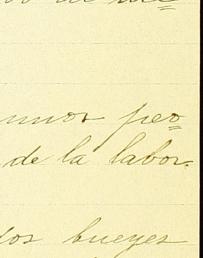 unos peo=
de la labor.
los bueyes